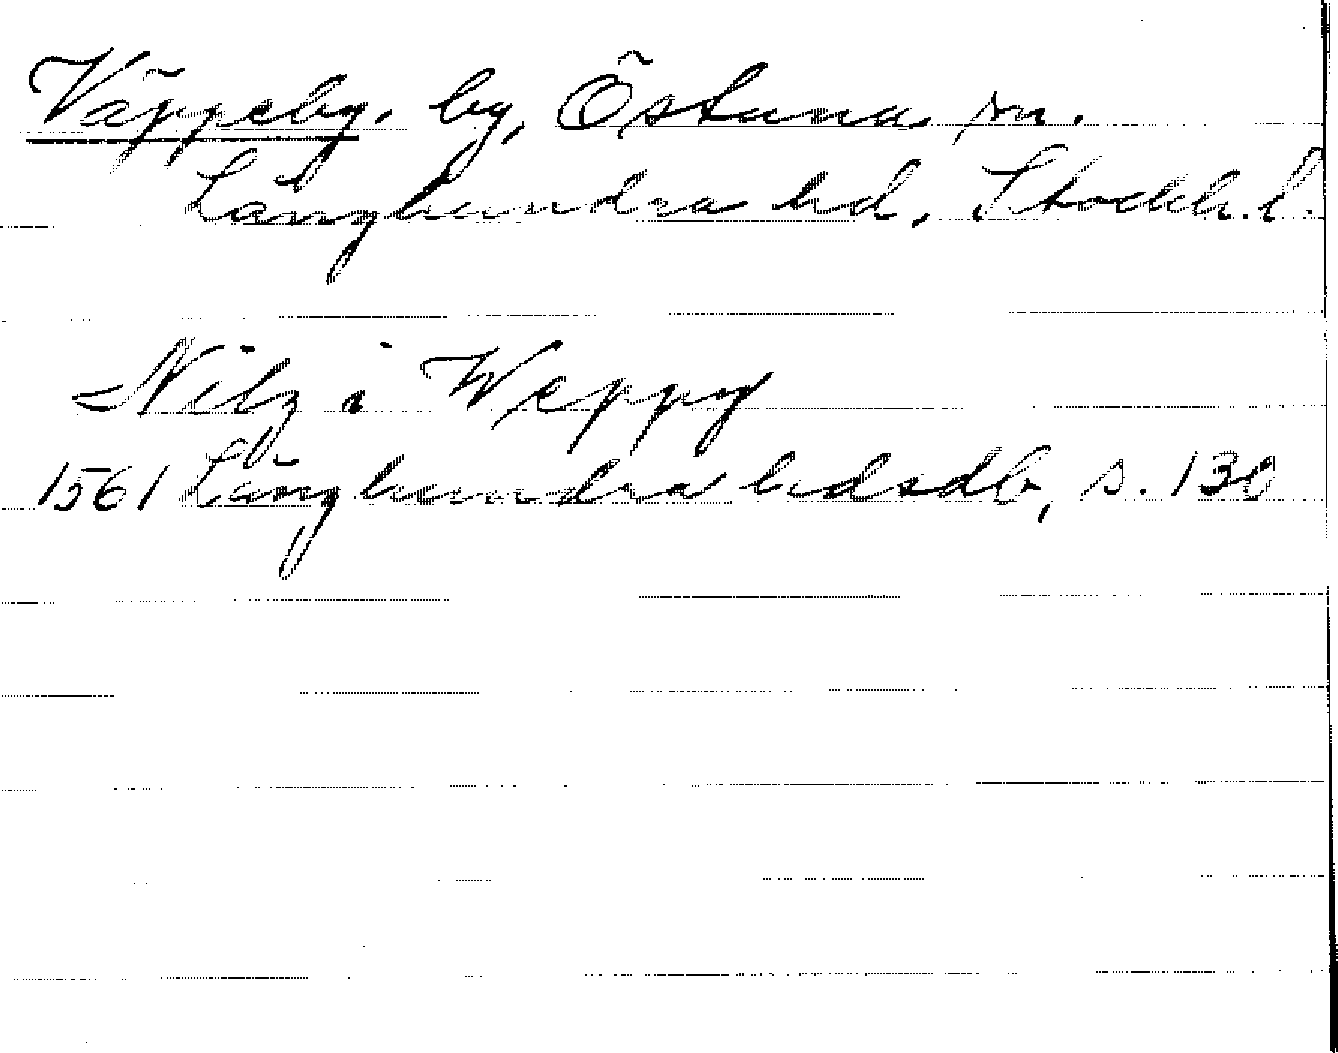 Väppeby. by, Östuna sn.
Långhundra hd. Stockh. l.
Nilz i Weppy
1561 Långhundra hdsdb, s. 130